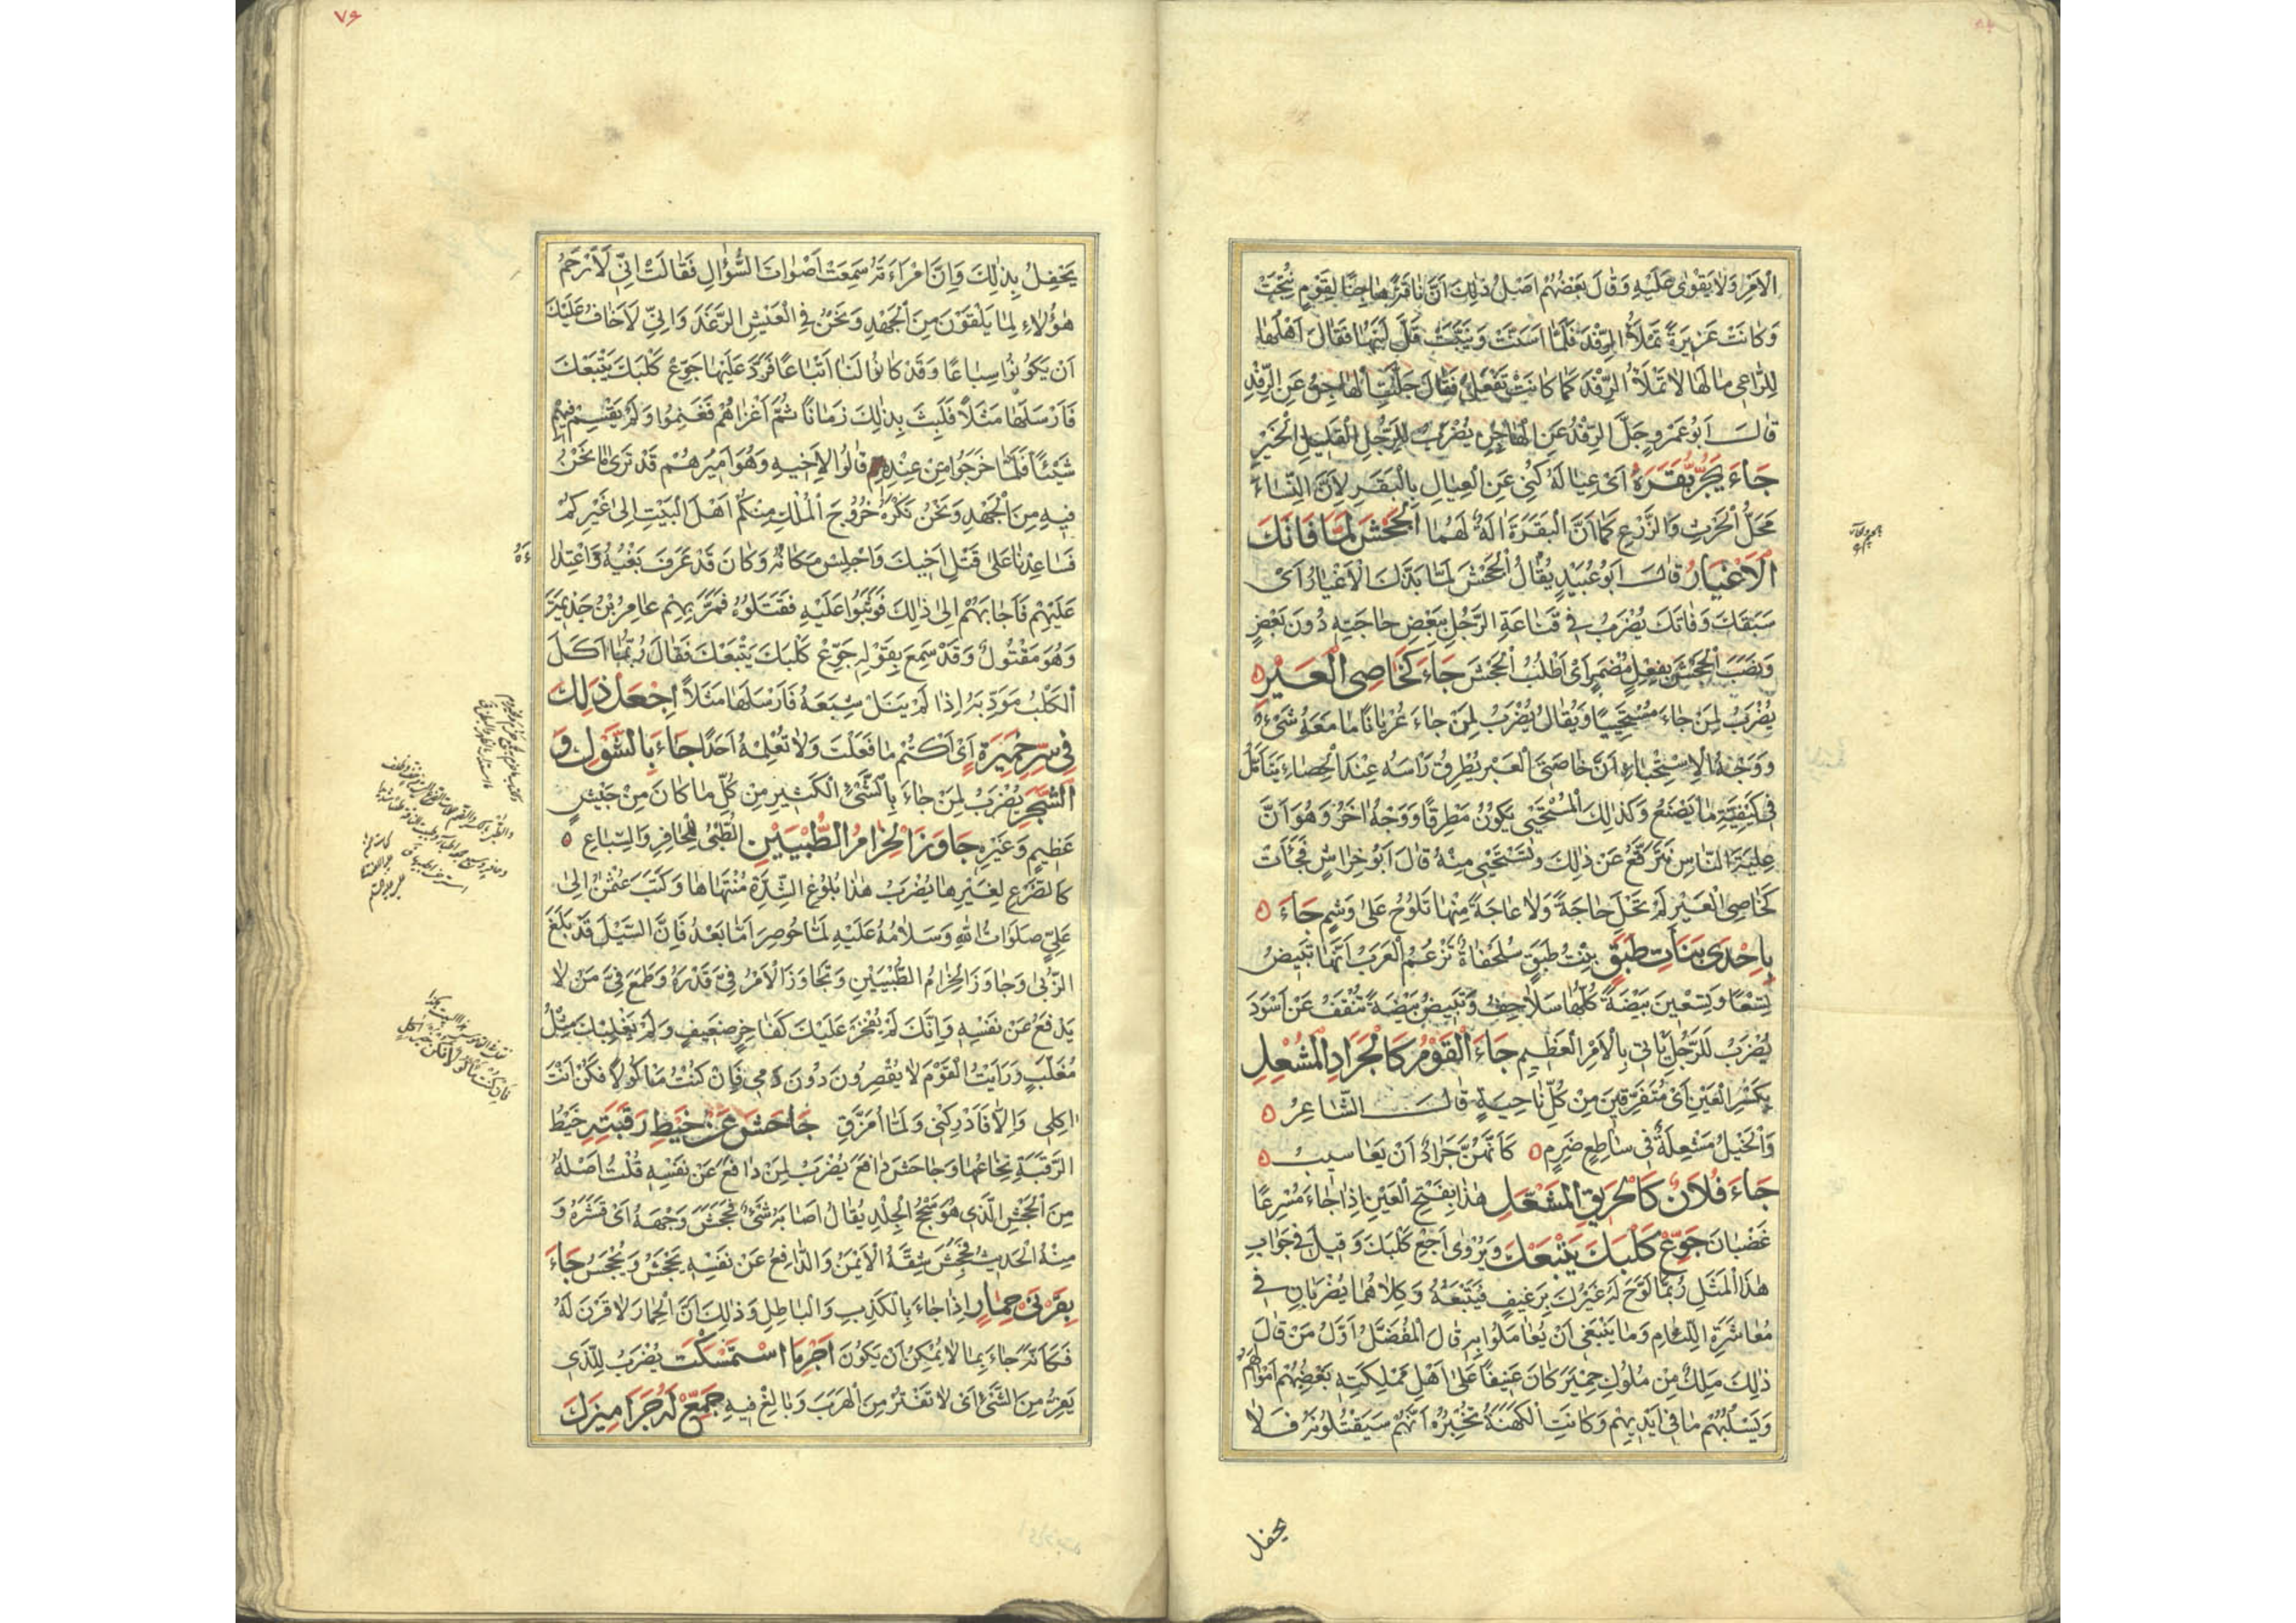 الْاَمْرَ وَلَا يَقْوٰى عَلَيْهِ وَقَالَ بَعْضُهُمْ اَصْلُ ذٰلِكَ اَنَّ نَاقَةً هَاجِنًا لِقَوْمٍ نُتِجَتْ
وَكَانَتْ غَزِيرَةً تَمْلَأُ الرِّفْدَ فَلَمَّا اَسَنَّتْ وَنَيَّبَتْ قَلَّ لَبَنُهَا فَقَالَ اَهْلُهَا
لِلرَّاعِى مَا لَهَا لَا تَمْلَأُ الرِّفْدَ كَمَا كَانَتْ تَفْعَلُ فَقَالَ جَلَّتِ الْهَاجِنُ عَنِ الرِّفْدِ
قَالَ اَبُو عَمْرٍو جَلَّ الرِّفْدُ عَنِ الْهَاجِنِ يُضْرَبُ لِلرَّجُلِ الْقَلِيلِ الْخَيْرِ
جَاءَ يَجُرُّ بَقَرَهُ اَىْ عِيَالَهُ كُنِىَ عَنِ الْعِيَالِ بِالْبَقَرِ لِاَنَّ النِّسَاءَ
مَحَلُّ الْحَرْثِ وَالزَّرْعِ كَمَا اَنَّ الْبَقَرَةَ اٰلَةٌ لَهُمَا الْجَحْشَ لَمَّا فَاتَكَ
الْاَعْيَارُ قَالَ اَبُو عُبَيْدٍ يُقَالُ الْجَحْشَ لَمَّا بَذَّكَ الْاَعْيَارُ اَىْ
سَبَقَكَ وَفَاتَكَ يُضْرَبُ فِى قَنَاعَةِ الرَّجُلِ بِبَعْضِ حَاجَتِهِ دُونَ بَعْضٍ
وَنَصَبَ الْجَحْشَ بِفِعْلٍ مُضْمَرٍ اَىْ اُطْلُبْ الْجَحْشَ جَاءَ كَخَاصِى الْعَيْرِ
يُضْرَبُ لِمَنْ جَاءَ مُسْتَحْيِيًا وَيُقَالُ يُضْرَبُ لِمَنْ جَاءَ عُرْيَانًا مَا مَعَهُ شَىْءٌ
وَوَجْهُ الْاِسْتِحْيَاءِ اَنَّ خَاصِىَ الْعَيْرِ يُطْرِقُ رَاْسَهُ عِنْدَ الْخِصَاءِ يَتَأَمَّلُ
فِى كَيْفِيَّةِ مَا يَصْنَعُ وَكَذٰلِكَ الْمُسْتَحْيِى يَكُونُ مُطْرِقًا وَوَجْهٌ اٰخَرُ وَهُوَ اَنَّ
عِلْيَةَ النَّاسِ تَتَرَفَّعُ عَنْ ذٰلِكَ وَتَسْتَحْيِى مِنْهُ قَالَ اَبُو خِرَاشٍ فَجَاءَتْ
كَخَاصِى الْعَيْرِ لَمْ تَحْلَ حَاجَةً وَلَا عَاجَةً مِنْهَا تَلُوحُ عَلٰى وَشْمٍ جَاءَ
بِاِحْدَى بَنَاتِ طَبَقٍ بِنْتُ طَبَقٍ سُلَحْفَاةٌ تَزْعُمُ الْعَرَبُ اَنَّهَا تَبِيضُ
تِسْعًا وَتِسْعِينَ بَيْضَةً كُلُّهَا سَلَاحِفُ وَتَبِيضُ بَيْضَةً تُنْقَفُ عَنْ اَسْوَدَ
يُضْرَبُ لِلرَّجُلِ يَاْتِى بِالْاَمْرِ الْعَظِيمِ جَاءَ الْقَوْمُ كَالْجَرَادِ الْمُشْعِلِ
بِكَسْرِ الْعَيْنِ اَىْ مُتَفَرِّقِينَ مِنْ كُلِّ نَاحِيَةٍ قَالَ الشَّاعِرُ
وَالْخَيْلُ مُشْعِلَةٌ فِى سَاطِعٍ ضَرِمٍ كَاَنَّهُنَّ جَرَادٌ اَنْ يَعَاسِيبُ
جَاءَ فُلَانٌ كَالْحَرِيقِ الْمُشْعَلِ هٰذَا بِفَتْحِ الْعَيْنِ اِذَا جَاءَ مُسْرِعًا
غَضْبَانَ جَوِّعْ كَلْبَكَ يَتْبَعْكَ وَيُرْوٰى اَجِعْ كَلْبَكَ وَقِيلَ فِى جَوَابِ
هٰذَا الْمَثَلِ رُبَّمَا لَوَّحَ لَهُ غَيْرُكَ بِرَغِيفٍ فَيَتْبَعُهُ وَكِلَاهُمَا يُضْرَبَانِ فِى
مُعَاشَرَةِ اللِّئَامِ وَمَا يَنْبَغِى اَنْ يُعَامَلُوا بِهِ قَالَ الْمُفَضَّلُ اَوَّلُ مَنْ قَالَ
ذٰلِكَ مَلِكٌ مِنْ مُلُوكِ حِمْيَرَ كَانَ عَنِيفًا عَلٰى اَهْلِ مَمْلِكَتِهِ يَغْصِبُهُمْ اَمْوَالَهُمْ
وَيَسْلُبُهُمْ مَا فِى اَيْدِيهِمْ وَكَانَتِ الْكَهَنَةُ تُخْبِرُهُ اَنَّهُمْ سَيَقْتُلُونَهُ فَلَا
يحفل
٧٦
يَحْفِلُ بِذٰلِكَ وَاِنَّ امْرَاَتَهُ سَمِعَتْ اَصْوَاتَ السُّؤَالِ فَقَالَتْ اِنِّى لَاَرْحَمُ
هٰؤُلَاءِ لِمَا يَلْقَوْنَ مِنَ الْجَهْدِ وَنَحْنُ فِى الْعَيْشِ الرَّغَدِ وَاِنِّى لَاَخَافُ عَلَيْكَ
اَنْ يَكُونُوا سِبَاعًا وَقَدْ كَانُوا لَنَا اَتْبَاعًا فَرَدَّ عَلَيْهَا جَوِّعْ كَلْبَكَ يَتْبَعْكَ
فَاَرْسَلَهَا مَثَلًا فَلَبِثَ بِذٰلِكَ زَمَانًا ثُمَّ اَغْزَاهُمْ فَغَنِمُوا وَلَمْ يَقْسِمْ فِيهِمْ
شَيْئًا فَلَمَّا خَرَجُوا مِنْ عِنْدِهِ قَالُوا لِاَخِيهِ وَهُوَ اَمِيرُهُمْ قَدْ تَرٰى مَا نَحْنُ
فِيهِ مِنَ الْجَهْدِ وَنَحْنُ نَكْرَهُ خُرُوجَ الْمُلْكِ مِنْكُمْ اَهْلَ الْبَيْتِ اِلٰى غَيْرِكُمْ
فَسَاعِدْنَا عَلٰى قَتْلِ اَخِيكَ وَاجْلِسْ مَكَانَهُ وَكَانَ قَدْ عَرَفَ بَغْيَهُ وَاعْتِدَاءَهُ
عَلَيْهِمْ فَاَجَابَهُمْ اِلٰى ذٰلِكَ فَوَثَبُوا عَلَيْهِ فَقَتَلُوهُ فَمَرَّ بِهِمْ عَامِرُ بْنُ جَذِيمَةَ
وَهُوَ مَقْتُولٌ وَقَدْ سَمِعَ بِقَوْلِهِ جَوِّعْ كَلْبَكَ يَتْبَعْكَ فَقَالَ رُبَّمَا اَكَلَ
الْكَلْبُ مُؤَدِّبَهُ اِذَا لَمْ يَنَلْ شِبَعَهُ فَاَرْسَلَهَا مَثَلًا اِجْعَلْ ذٰلِكَ
فِى سِرِّ خَمِيرَةٍ اَىْ اُكْتُمْ مَا فَعَلْتَ وَلَا تُعْلِمْهُ اَحَدًا جَاءَ بِالشَّوْلِ وَ
الشَّجَرِ يُضْرَبُ لِمَنْ جَاءَ بِالشَّىْءِ الْكَثِيرِ مِنْ كُلِّ مَا كَانَ مِنْ جَيْشٍ
عَظِيمٍ وَغَيْرِهِ جَاوَزَ الْحِزَامُ الطُّبْيَيْنِ الطُّبْىُ لِلْحَافِرِ وَالسِّبَاعِ
كَالضَّرْعِ لِغَيْرِهَا يُضْرَبُ هٰذَا بُلُوغَ الشِّدَّةِ مُنْتَهَاهَا وَكَتَبَ عُثْمٰنُ اِلٰى
عَلِىٍّ صَلَوَاتُ اللّٰهِ وَسَلَامُهُ عَلَيْهِ لَمَّا حُوصِرَ اَمَّا بَعْدُ فَاِنَّ السَّيْلَ قَدْ بَلَغَ
الزُّبٰى وَجَاوَزَ الْحِزَامُ الطُّبْيَيْنِ وَتَجَاوَزَ الْاَمْرُ فِىَّ قَدْرَهُ وَطَمِعَ فِىَّ مَنْ لَا
يَدْفَعُ عَنْ نَفْسِهِ وَاِنَّكَ لَمْ يَفْخَرْ عَلَيْكَ كَفَاخِرٍ ضَعِيفٍ وَلَمْ يَغْلِبْكَ مِثْلُ
مُغَلَّبٍ وَرَاَيْتُ الْقَوْمَ لَا يُقْصِرُونَ دُونَ دَمِى فَاِنْ كُنْتُ مَاْكُولًا فَكُنْ اَنْتَ
اٰكِلِى وَاِلَّا فَاَدْرِكْنِى وَلَمَّا اُمَزَّقِ جَاحَشَ عَنْ خَيْطِ رَقَبَتِهِ خَيْطُ
الرَّقَبَةِ نِخَاعُهَا وَجَاحَشَ دَافَعَ يُضْرَبُ لِمَنْ دَافَعَ عَنْ نَفْسِهِ قُلْتُ اَصْلُهُ
مِنَ الْجَحْشِ الَّذِى هُوَ سَحْجُ الْجِلْدِ يُقَالُ اَصَابَهُ شَىْءٌ فَجَحَشَ وَجْهَهُ اَىْ قَشَرَهُ وَ
مِنْهُ الْحَدِيثُ فَجُحِشَ شِقُّهُ الْاَيْمَنُ وَالدَّافِعُ عَنْ نَفْسِهِ يَجْحَشُ وَيُجْحَشُ جَاءَ
بِقَرْنَىْ حِمَارٍ اِذَا جَاءَ بِالْكَذِبِ وَالْبَاطِلِ وَذٰلِكَ اَنَّ الْحِمَارَ لَا قَرْنَ لَهُ
فَكَاَنَّهُ جَاءَ بِمَا لَا يُمْكِنُ اَنْ يَكُونَ اَجْرِ مَا اسْتَمْسَكْتَ يُضْرَبُ لِلَّذِى
يَفِرُّ مِنَ الشَّىْءِ اَىْ لَا تَفْتُرْ مِنَ الْهَرَبِ وَبَالِغْ فِيهِ جَمِّعْ لَهُ جَرَامِيزَكَ